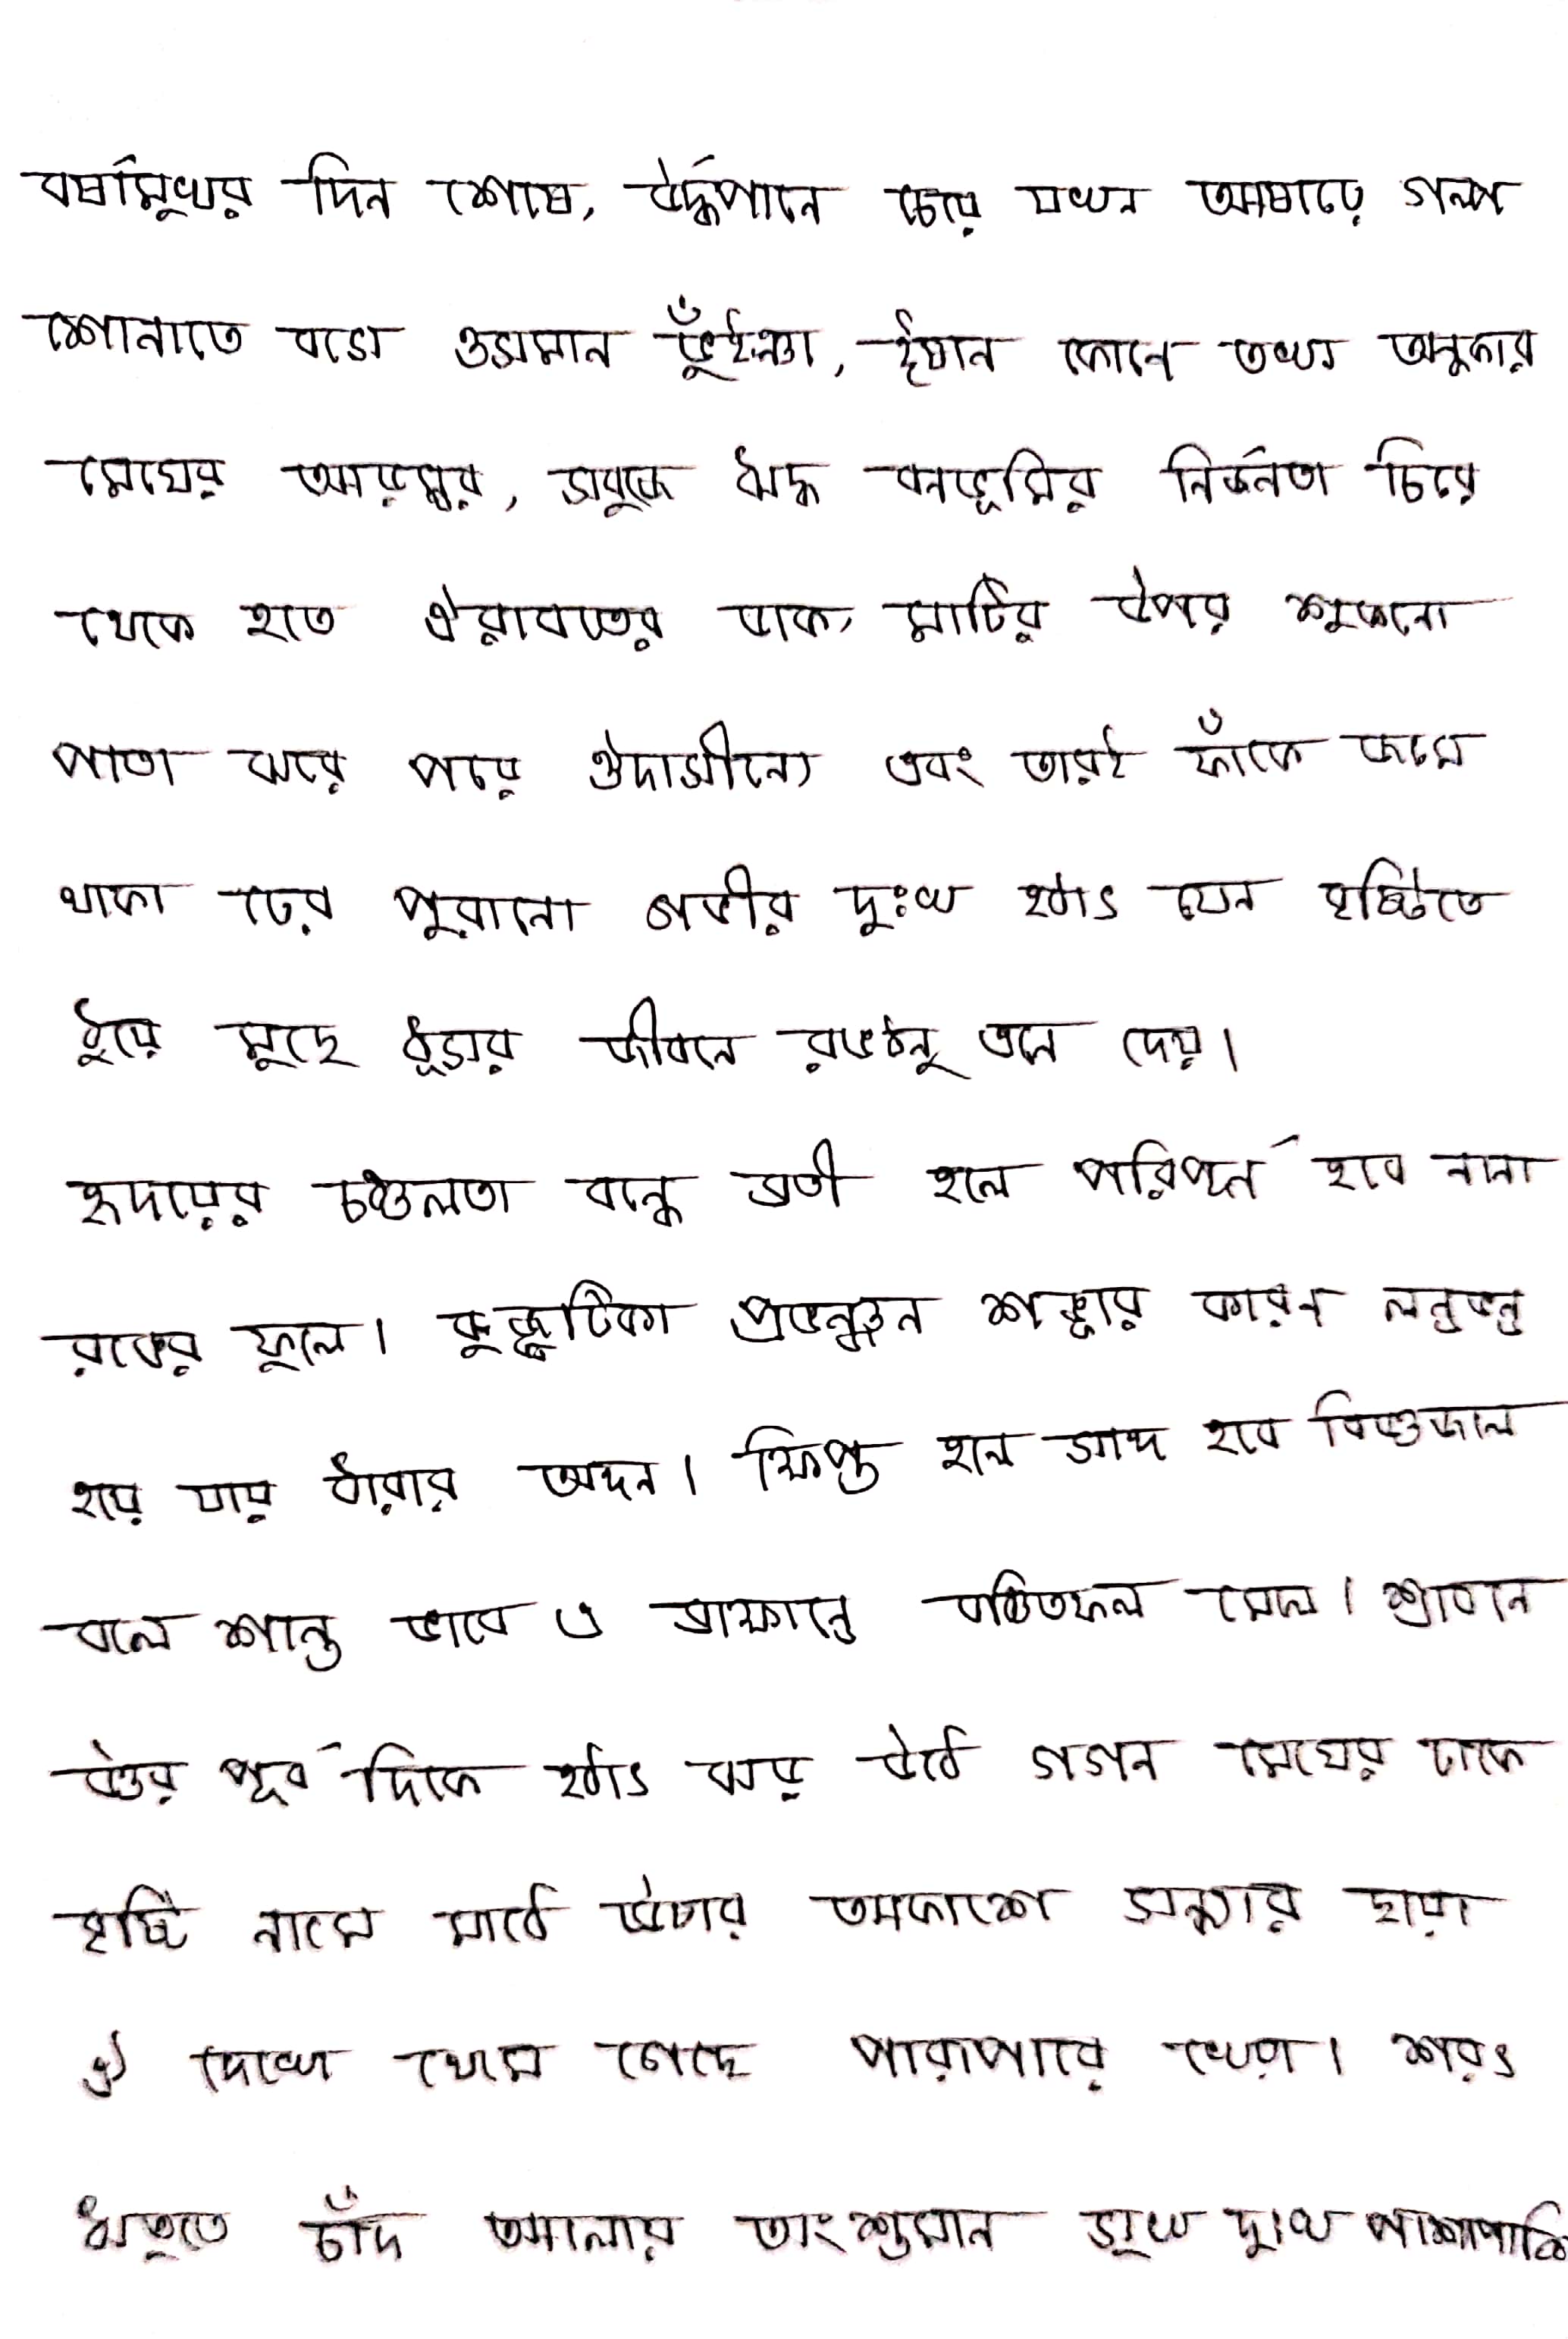 বর্ষামুখর দিন শেষে, ঊর্দ্ধপানে চেয়ে যখন আষাঢ়ে গল্প
শোনাতে বসে ওসমান ভুঁইঞা, ঈষান কোনে তখন অন্ধকার
মেঘের আড়ম্বর, সবুজে ঋদ্ধ বনভূমির নির্জনতা চিরে
থেকে হতে ঐরাবতের ডাক, মাটির উপর শুকনো
পাতা ঝরে পড়ে ঔদাসীন্যে এবং তারই ফাঁকে জমে
থাকা ঢের পুরানো গভীর দুঃখ হঠাৎ যেন বৃষ্টিতে
ধুয়ে মুছে ধূসর জীবনে রঙধনু এনে দেয়।
হৃদয়ের চঞ্চলতা বন্ধে ব্রতী হলে পরিপূর্ন হবে নানা
রঙের ফুলে। কুজ্ঝটিকা প্রভঞ্জন শঙ্কার কারণ লণ্ডভণ্ড
হয়ে যায় ধারার অঙ্গন। ক্ষিপ্ত হলে সাঙ্গ হবে বিশ্বজাল
বলে শান্ত ভাবে ও ব্রাহ্মণে বাঞ্ছিতফল মেলে। শ্রাবনে
উত্তর পূর্ব দিকে হঠাৎ করে উঠে গগন মেঘেতে ঢাকে
বৃষ্টি নামে মাঠে ঊষার আকাশে সন্ধ্যার ছায়া
ঐ দেখো থেমে গেছে পারাপারের খেয়া। শরৎ
ঋতুতে চাঁদ আলোয় অংশুমান সুখ দুঃখ পাশাপাশি